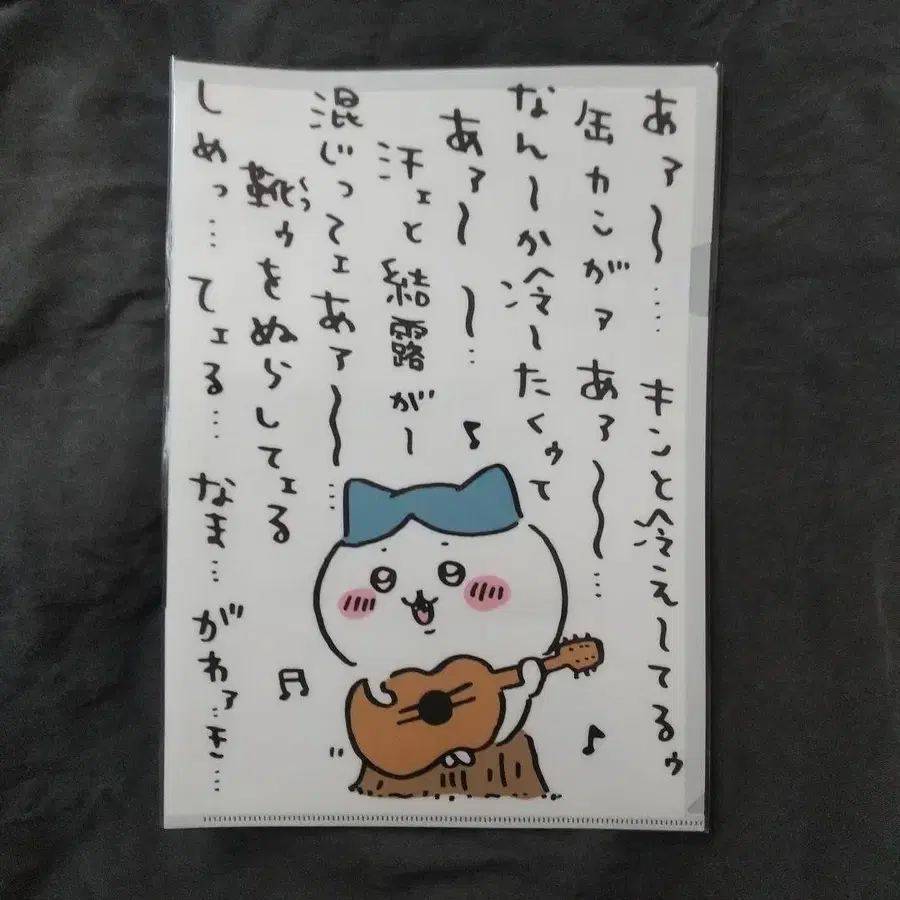 あァ〜… キンと冷え〜てるゥ
缶カンがァ あァ〜〜…
なん〜か冷〜たくゥて
あァ〜 〜…♪
汗ェと結露がー
混じってェあァ〜〜…
靴ゥをぬらしてェる
くつ
しめっ… てェる… なま… がわァ…き…